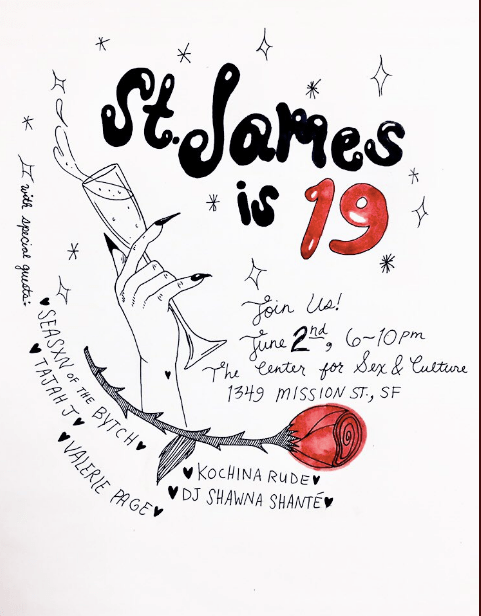 St. James
is 19
Join Us!
June 2nd, 6-10pm
The Center for Sex & Culture
1349 MISSION ST., SF
with special guests:
♥ SEASXN OF THE BYTCH ♥
♥ TAJAH J ♥
♥ VALERIE PAGE ♥
♥ KOCHINA RUDE ♥
♥ DJ SHAWNA SHANTÉ ♥